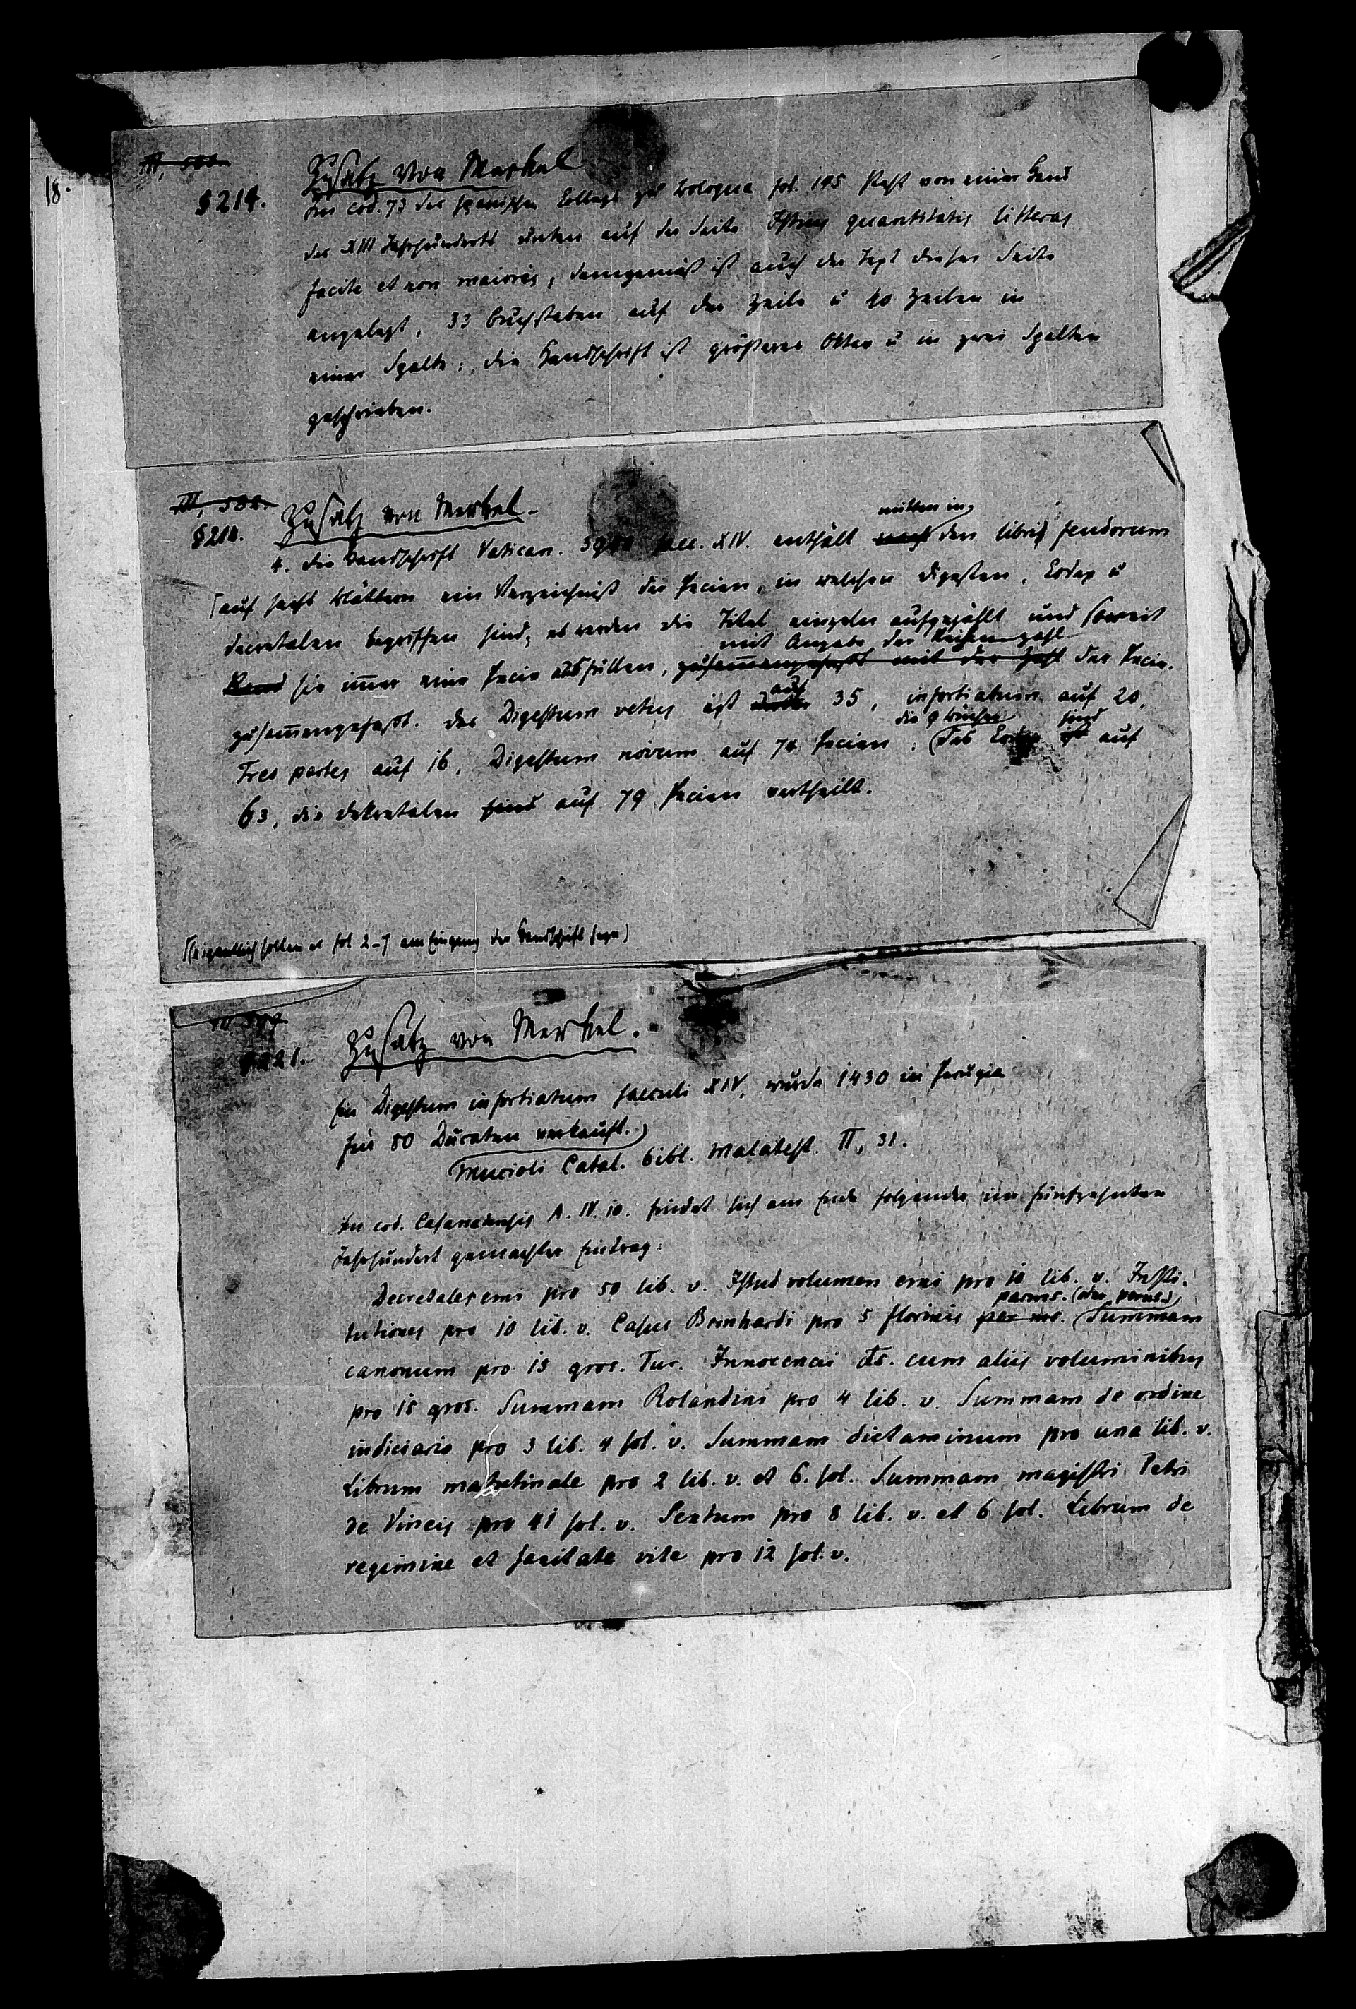 18.
§ 214.
Zusatz von Merkel
Im cod. 73 des spanischen Collegs zu Bologna fol. 145 steht von einer Hand
des XIII Jahrhunderts unten auf der Seite Istius quantitatis litteras
facite et non maiores, demgemäß ist auch der Text dieser Seite
angelegt, 33 Buchstaben auf der Zeile u 40 Zeilen in
einer Spalte; die Handschrift ist größeres Oktav u in zwei Spalten
geschrieben.
III, 588.
§ 214.
Zusatz von Merkel.
mitten in
4. die Handschrift Vatican. saec. XIV. enthält nach den libris feudorum
auf sechs Blättern ein Verzeichniß der Pecien, in welchen Digesten, Codex u
decretalen begriffen sind; es werden die Titel einzeln aufgezählt und soweit
mit Angabe der Reihenzahl
sie immer eine Pecie ausfüllen, zusammengefasst mit der Zahl der Pecie.
zusammengefasst. das Digestum vetus ist auf 35, infortiatum auf 20,
die 9 Bücher sind
Tres partes auf 16, Digestum novum auf 74 Pecien; des Codex ist auf
63, die dekretalen sind auf 79 Pecien vertheilt.
(eigentlich sollten es fol 2-7 am Eingang der Handschrift seyn)
221.
Zusatz von Merkel.
Ein Digestum infortiatum saeculi XIV, wurde 1430 in Perugia
für 80 Ducaten verkauft.
Mucioli Catal. bibl. Malatest. II, 31.
Im cod. Casanatensis A. IV. 10. findet sich am Ende folgender im fünfzehnten
Jahrhundert gemachter Eintrag:
Decretales emi pro 50 lib. v. Istud volumen emi pro 10 lib. v. Insti-
parms. (oder verus.)
tutiones pro 10 lib. v. Casus Bernhardi pro 5 florinis Summam
canonum pro 15 gros. Tur. Innocencii cum aliis voluminibus
pro 15 gros. Summam Rolandini pro 4 lib. v. Summam de ordine
iudiciario pro 3 lib. 4 sol. v. Summam dictaminum pro una lib. v.
Librum matutinale pro 2 lib. v. et 6. sol. Summam magistri Petri
de Vineis pro 41 sol. v. Sextum pro 8 lib. v. et 6 sol. Librum de
regimine et sanitate vite pro 12 sol. v.